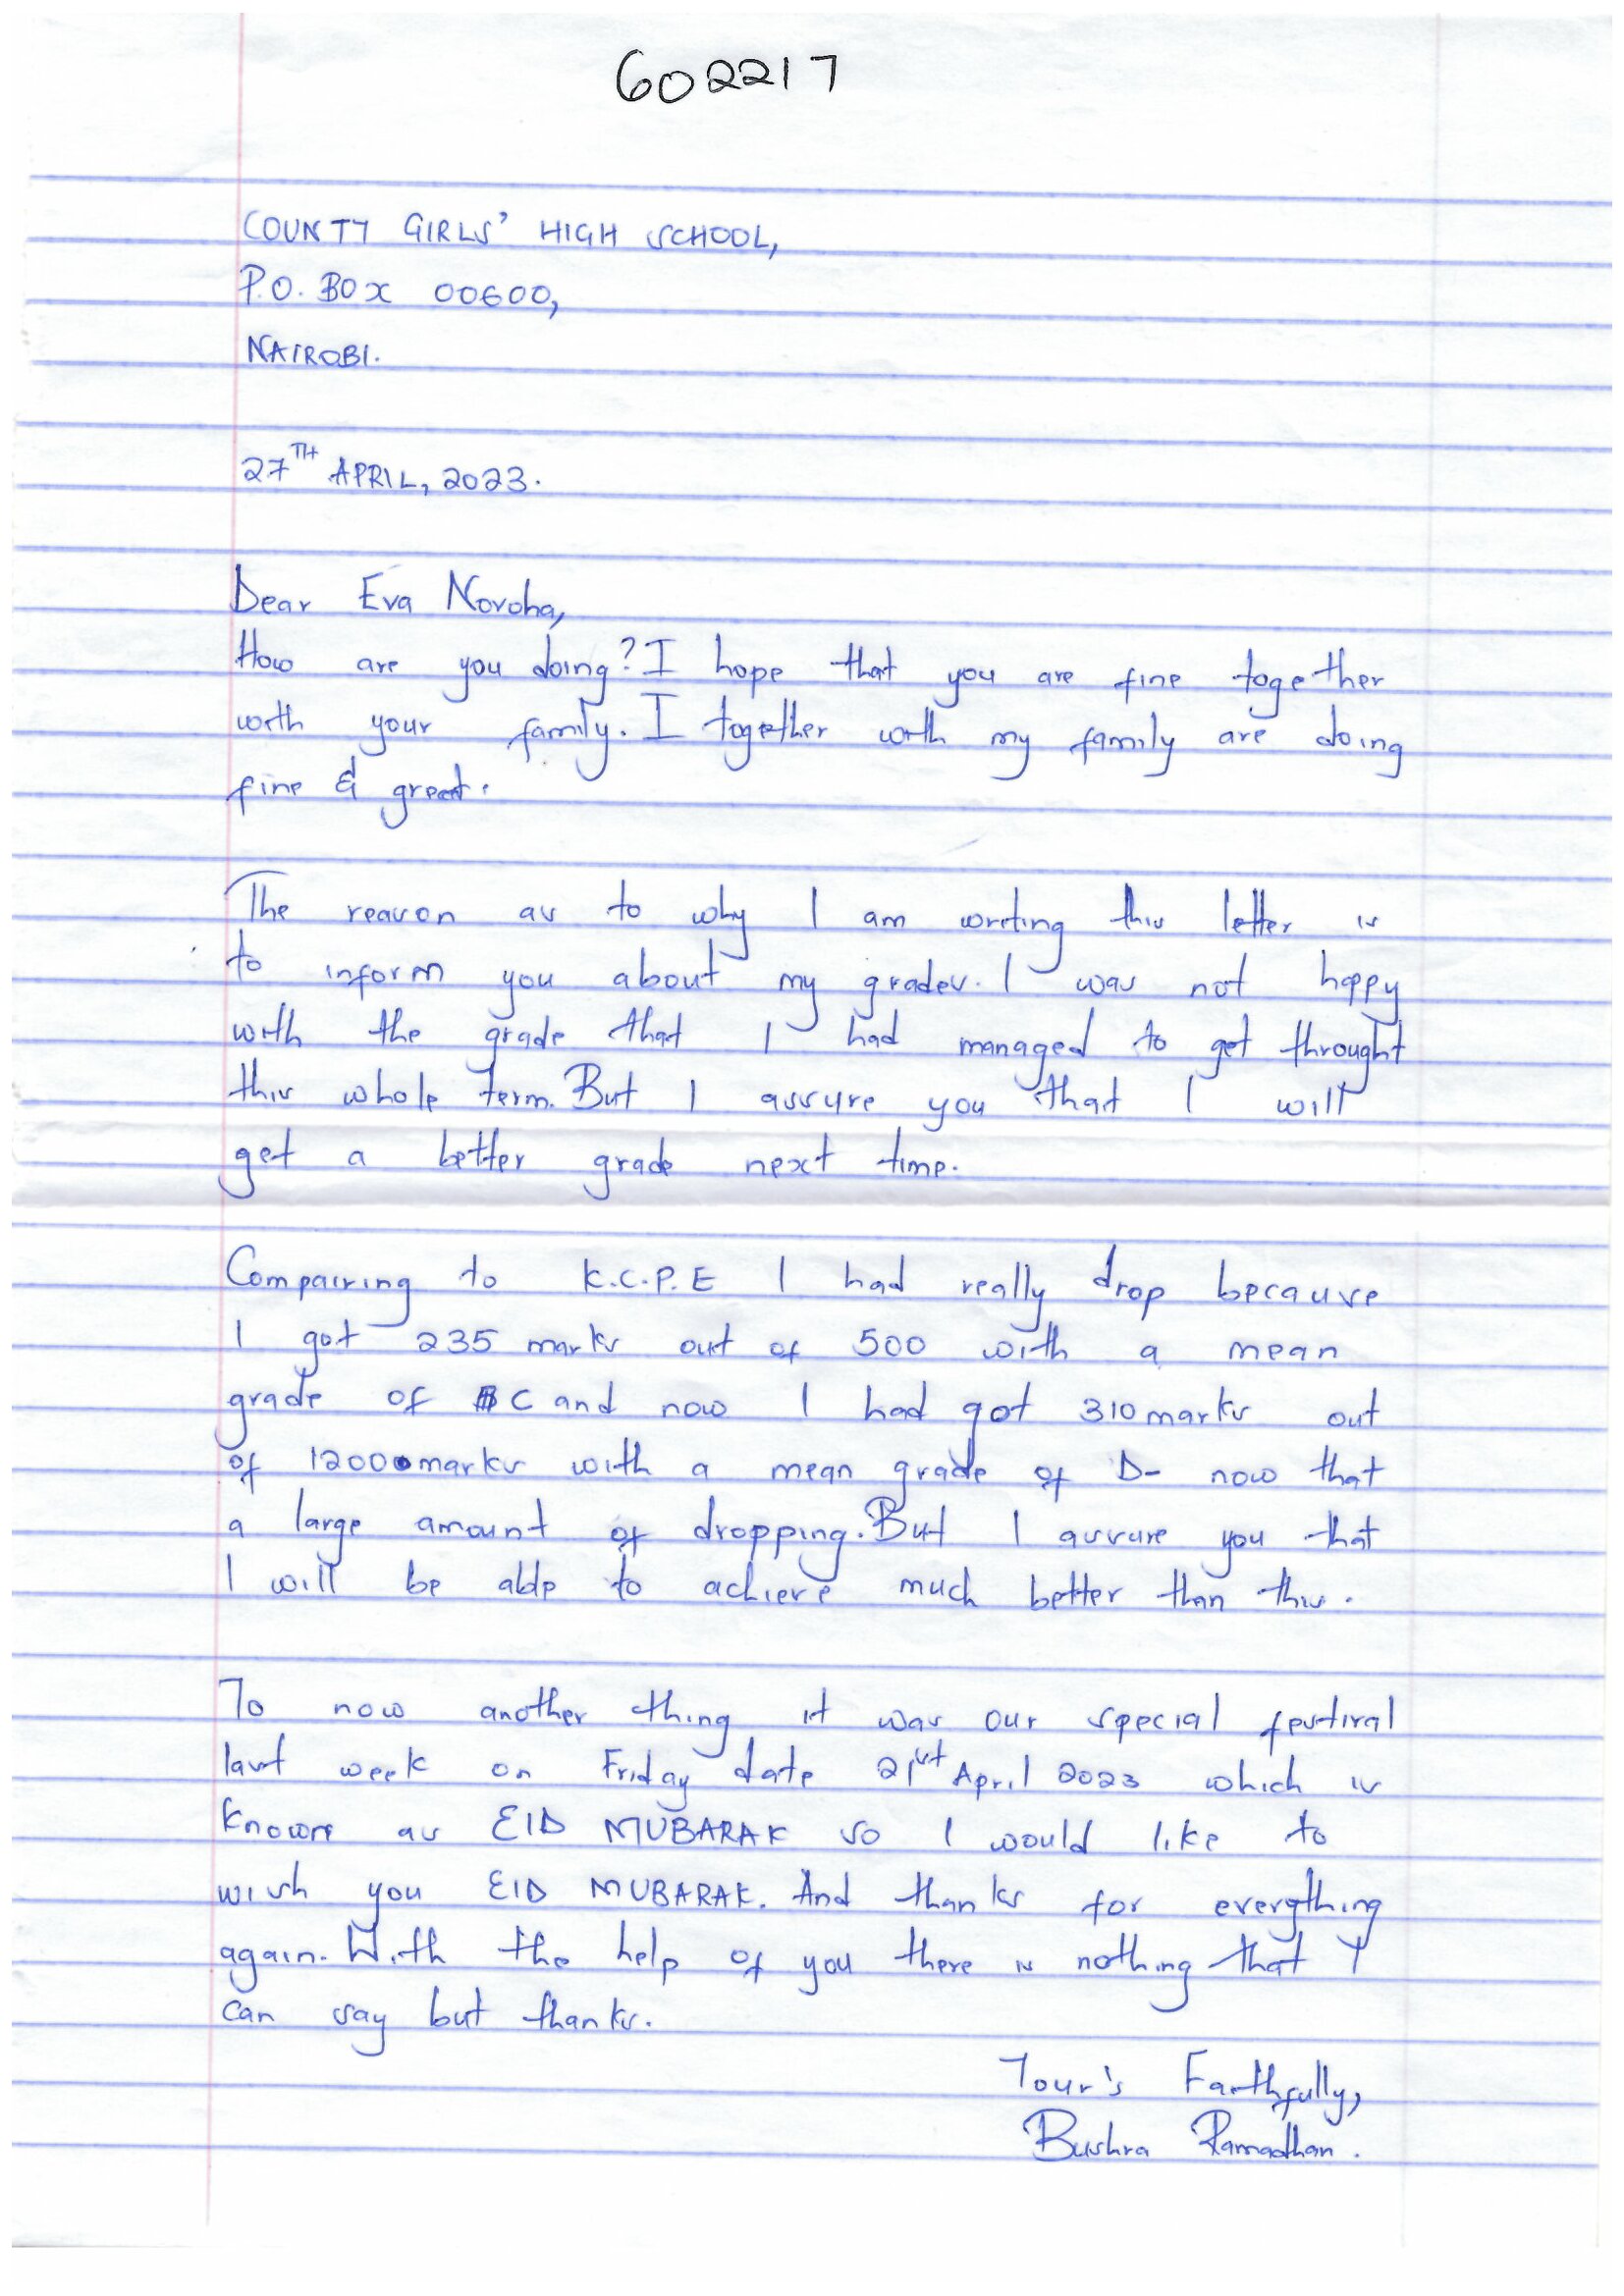 602217
COUNTY GIRLS' HIGH SCHOOL,
P.O. BOX 00600,
NAIROBI.
27TH APRIL, 2023.
Dear Eva Novoha,
How are you doing? I hope that you are fine together
with your family. I together with my family are doing
fine & great.
The reason as to why I am writing this letter is
to inform you about my grades. I was not happy
with the grade that I had managed to get throught
this whole term. But I assure you that I will
get a better grade next time.
Compairing to K.C.P.E I had really drop because
I got 235 marks out of 500 with a mean
grade of C and now I had got 310 marks out
of 1200 marks with a mean grade of D- now that
a large amount of dropping. But I assure you that
I will be able to achieve much better than this.
To now another thing it was our special festival
last week on Friday date 21st April 2023 which is
known as EID MUBARAK so I would like to
wish you EID MUBARAK. And thanks for everything
again. With the help of you there is nothing that I
can say but thanks.
Your's Faithfully,
Bushra Ramadhan.